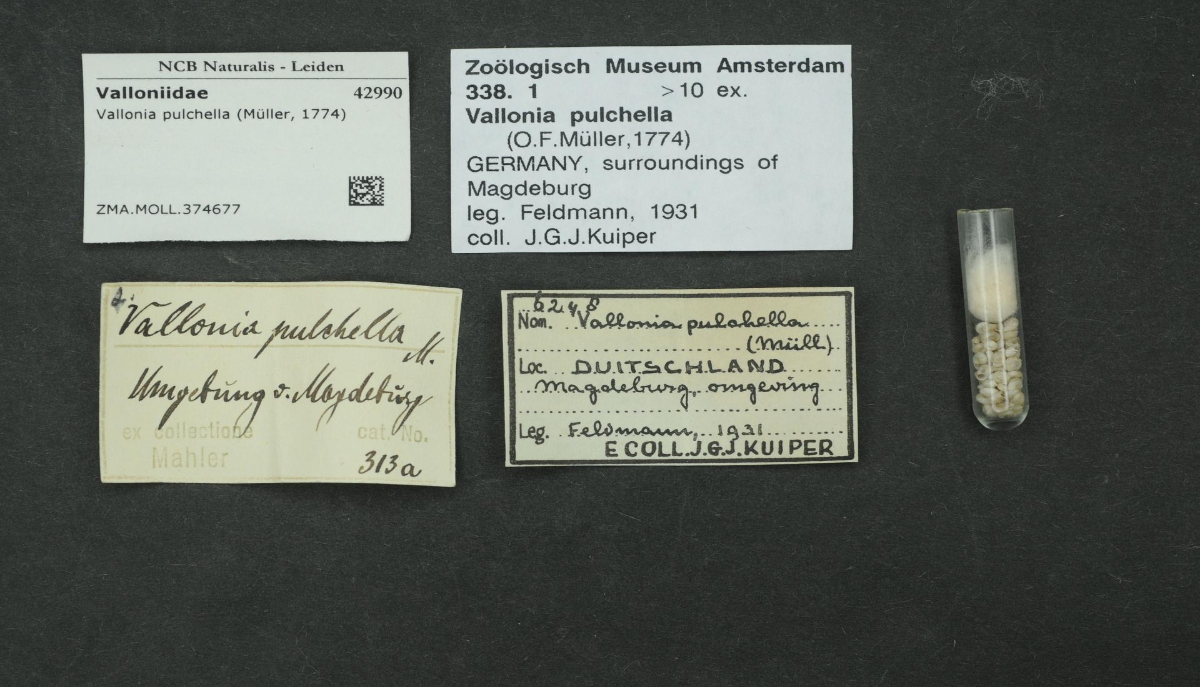 NCB Naturalis - Leiden
Valloniidae 42990
Vallonia pulchella (Müller, 1774)
ZMA.MOLL.374677
Zoölogisch Museum Amsterdam
338. 1 >10 ex.
Vallonia pulchella
(O.F.Müller,1774)
GERMANY, surroundings of
Magdeburg
leg. Feldmann, 1931
coll. J.G.J.Kuiper
Vallonia pulchella
M.
Umgebung v. Magdeburg
ex collectione cat. No.
Mahler 313a
6248
Nom. Vallonia pulchella
(Müll)
Loc. DUITSCHLAND
Magdeburg, omgeving
Leg. Feldmann, 1931
E COLL. J.G.J.KUIPER